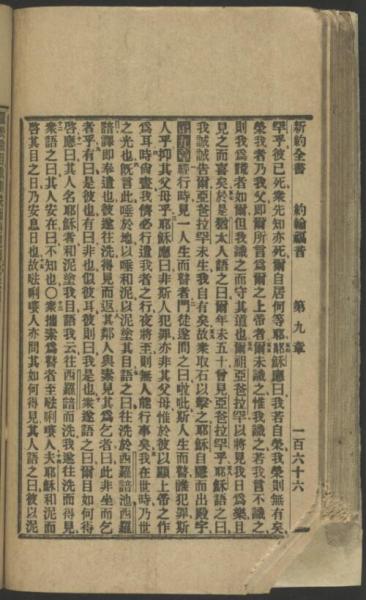 新約全書 約翰福音 第九章 一百六十六
罕乎彼已死衆先知亦死爾自居何等耶耶穌應曰我若自榮我榮則無有矣
榮我者乃我父即爾所言爲爾之上帝者爾未識之惟我識之若我言不識之
則我爲謊者如爾但我識之而守其道也爾祖亞爸拉罕以將見我日爲樂且
見之而喜矣於是猶太人語之曰爾年未五十曾見亞爸拉罕乎耶穌語之曰
我誠誠告爾亞爸拉罕未生我自有矣故衆取石以擊之耶穌自隱而出殿宇
第九章經行時見一人生而瞽者門徒遂問之曰吡斯人生而瞽誰犯罪斯
人乎抑其父母乎耶穌應曰非斯人犯罪亦非其父母惟於彼以顯上帝之作
爲耳時尚晝我儕必行遣我者之行夜將至則無人能行矣我在世時乃世
之光也既言此唾於地以唾和泥以泥塗其目語之曰往洗於西羅諳池西羅
諳譯即奉遣也彼遂往洗得見而返其鄰人與素見其爲乞者曰此非坐而乞
者乎有曰是彼也有曰非也似彼耳彼則曰我是也衆遂語之曰爾目如何得
啓應曰其人名耶穌者和泥塗我目語我云往西羅諳而洗我遂往洗而得見
衆語之曰其人安在曰不知也○衆攜素爲瞽者至唎嘍人夫耶穌和泥而
啓其目之日乃安息日也故唎嘍人亦問其如何得見其人語之曰彼以泥